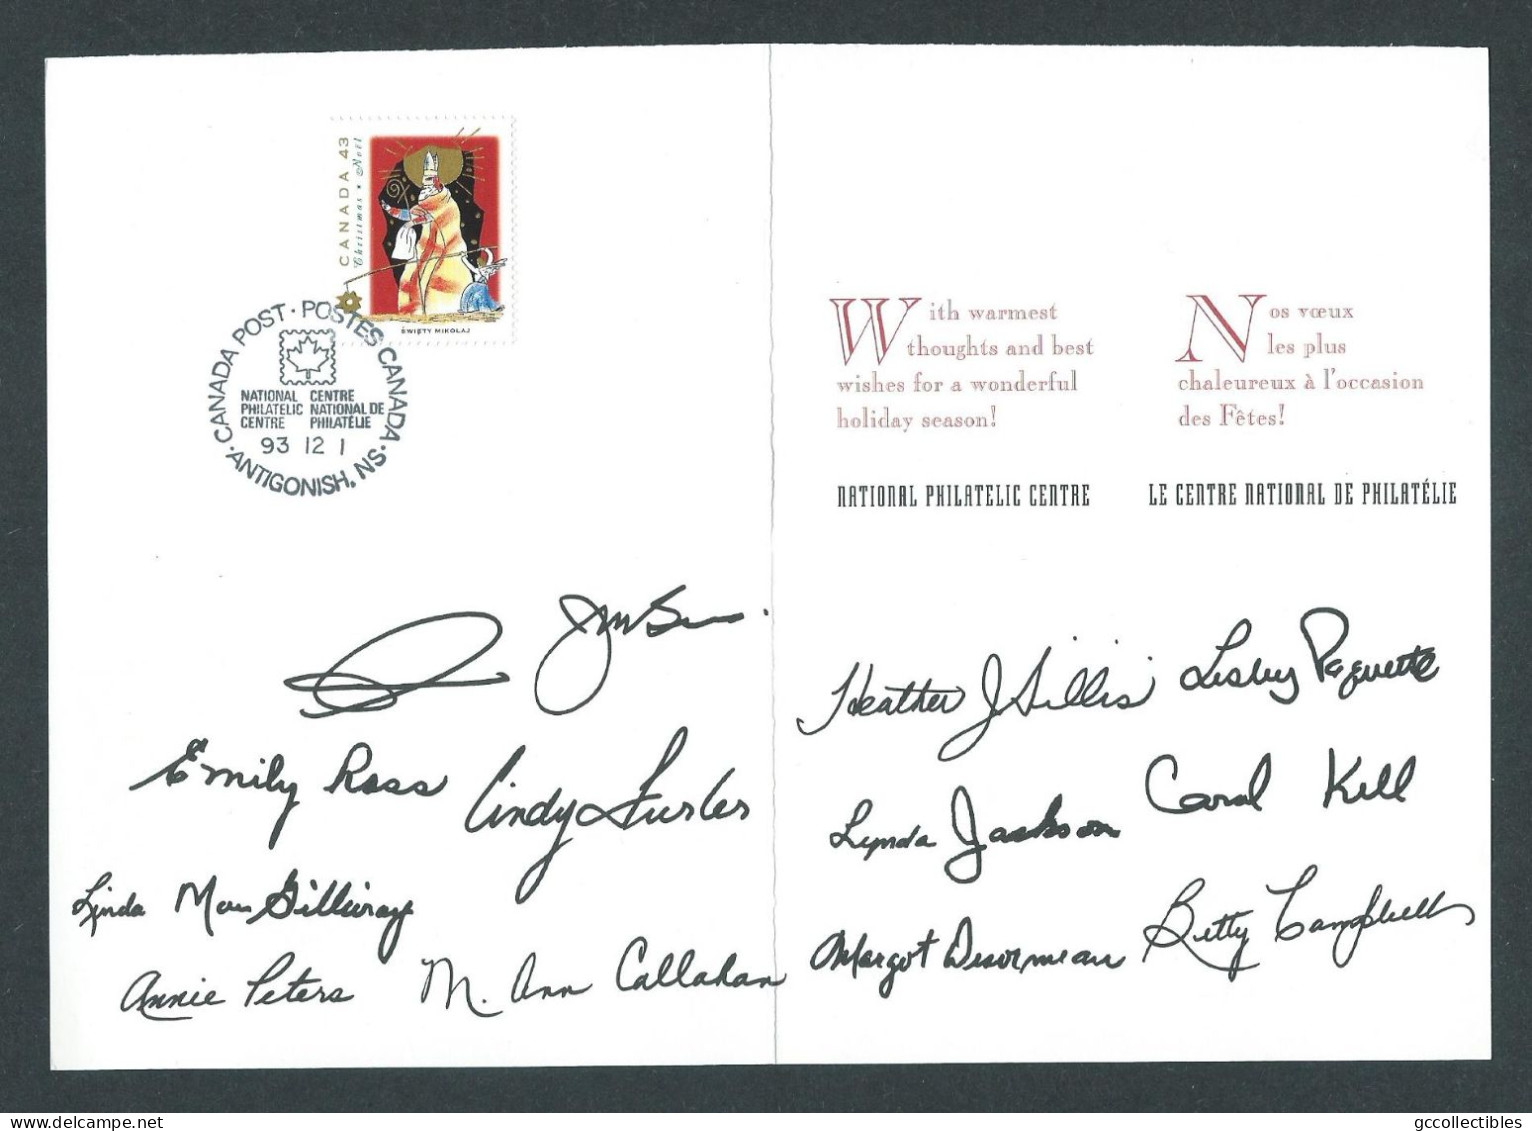 CANADA 43
Christmas • Noël
ŚWIĘTY MIKOLAJ
CANADA POST · POSTES CANADA
NATIONAL CENTRE
PHILATELIC NATIONAL DE
CENTRE PHILATÉLIE
93 12 1
· ANTIGONISH, NS ·
With warmest
thoughts and best
wishes for a wonderful
holiday season!
NATIONAL PHILATELIC CENTRE
Nos vœux
les plus
chaleureux à l'occasion
des Fêtes!
LE CENTRE NATIONAL DE PHILATÉLIE
Emily Ross Cindy
Linda MacGillivray
Annie Peters M. Ann Callahan
Heather J Gillis Lesley Paquette
Lynda Jackson Carol Kell
Margot Desormeau Betty Campbell
gccollectibles